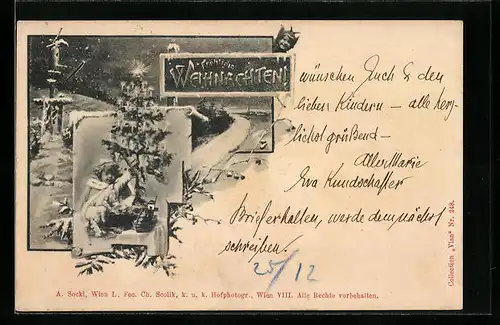 Fröhliche
WEIHNACHTEN!
wünschen Euch & den
lieben Kindern – alle herz-
lichst grüßend –
Marie
Eva Kundschafter
Brief erhalten, werde demnächst
schreiben.
25/12
A. Sockl, Wien I. Fec. Ch. Scolik, k. u. k. Hofphotogr., Wien VIII. Alle Rechte vorbehalten.
Collection „Vlan" Nr. 248.